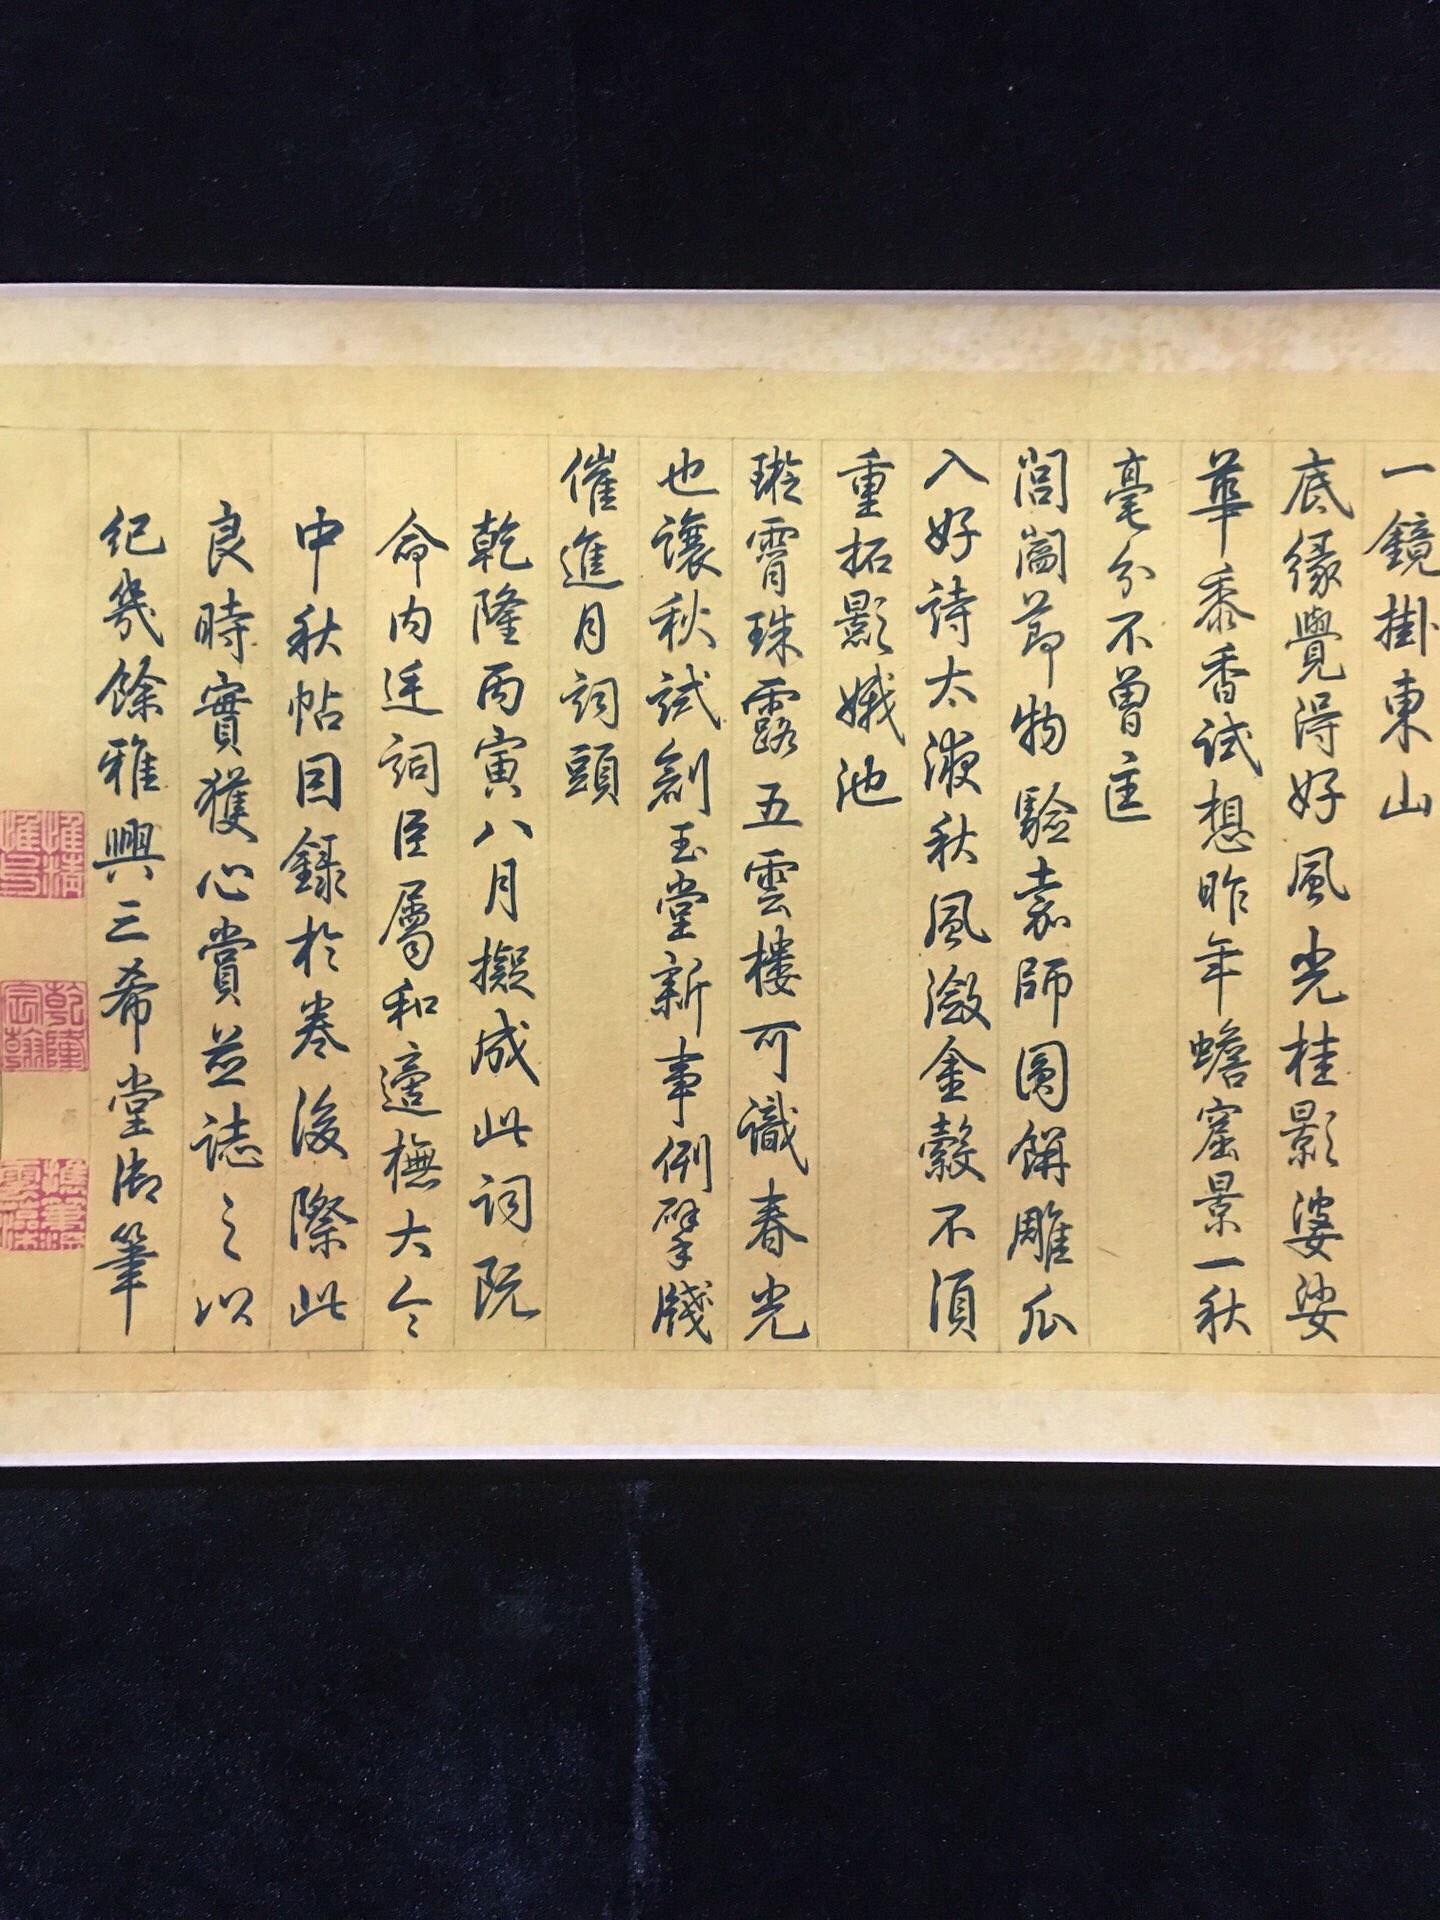 一鏡掛東山
底緣覺得好風光桂影婆娑
華黍香試想昨年蟾窟景一秋
毫分不曽
閶闔節物驗嘉師圓餅雕瓜
入好詩太液秋風瀲金縠不須
重拓影娥池
璇霄珠露五雲樓可識春光
也讓秋試創玉堂新事例擘牋
催進月詞頭
乾隆丙寅八月擬成此詞既
命內廷詞臣屬和適橅大令
中秋帖因錄於卷後際此
良時實獲心賞並誌之以
紀幾餘雅興三希堂御筆
惟精惟一
乾隆宸翰